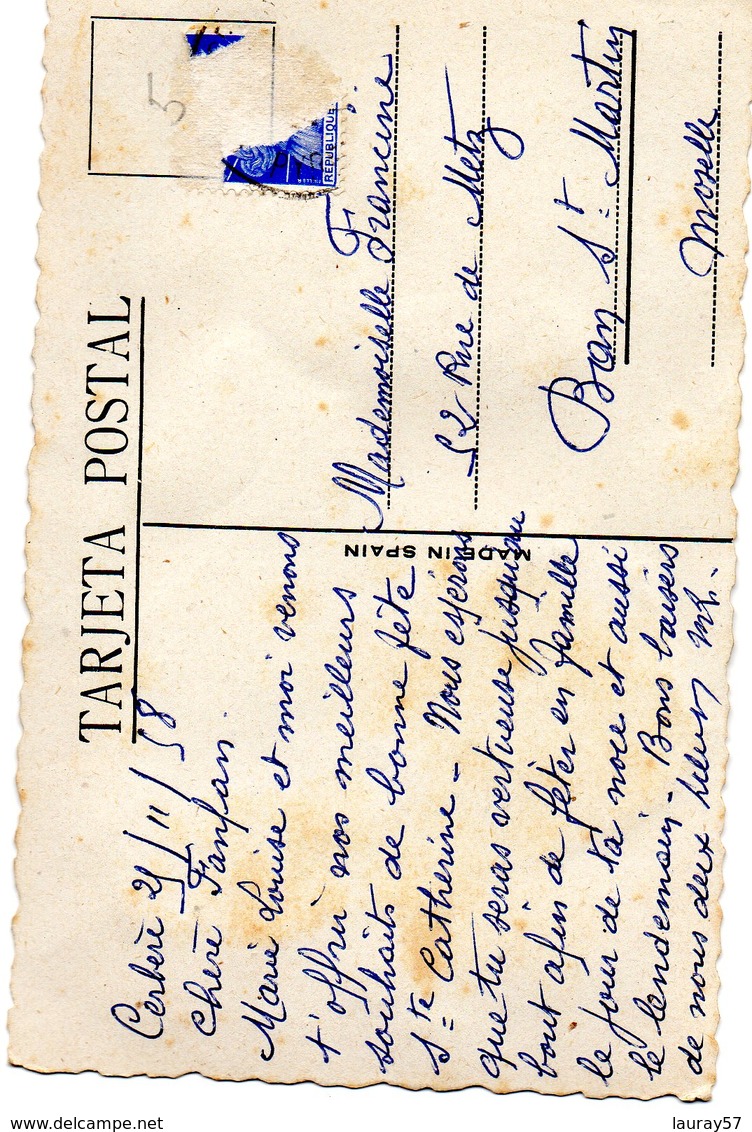 TARJETA POSTAL
Cerbère 21/11/58
Chère Fanfan
Marie Louise et moi venons
t'offrir nos meilleurs
souhaits de bonne fête
Ste Catherine - Nous espérons
que tu seras vertueuse jusqu'au
bout afin de fêter en famille
le jour de ta noce et aussi
le lendemain - Bons baisers
de nous deux
MADE IN SPAIN
5
REPUBLIQUE
Mademoiselle Francine
52 Rue de Metz
Ban St Martin
Moselle
delcampe.net
lauray57